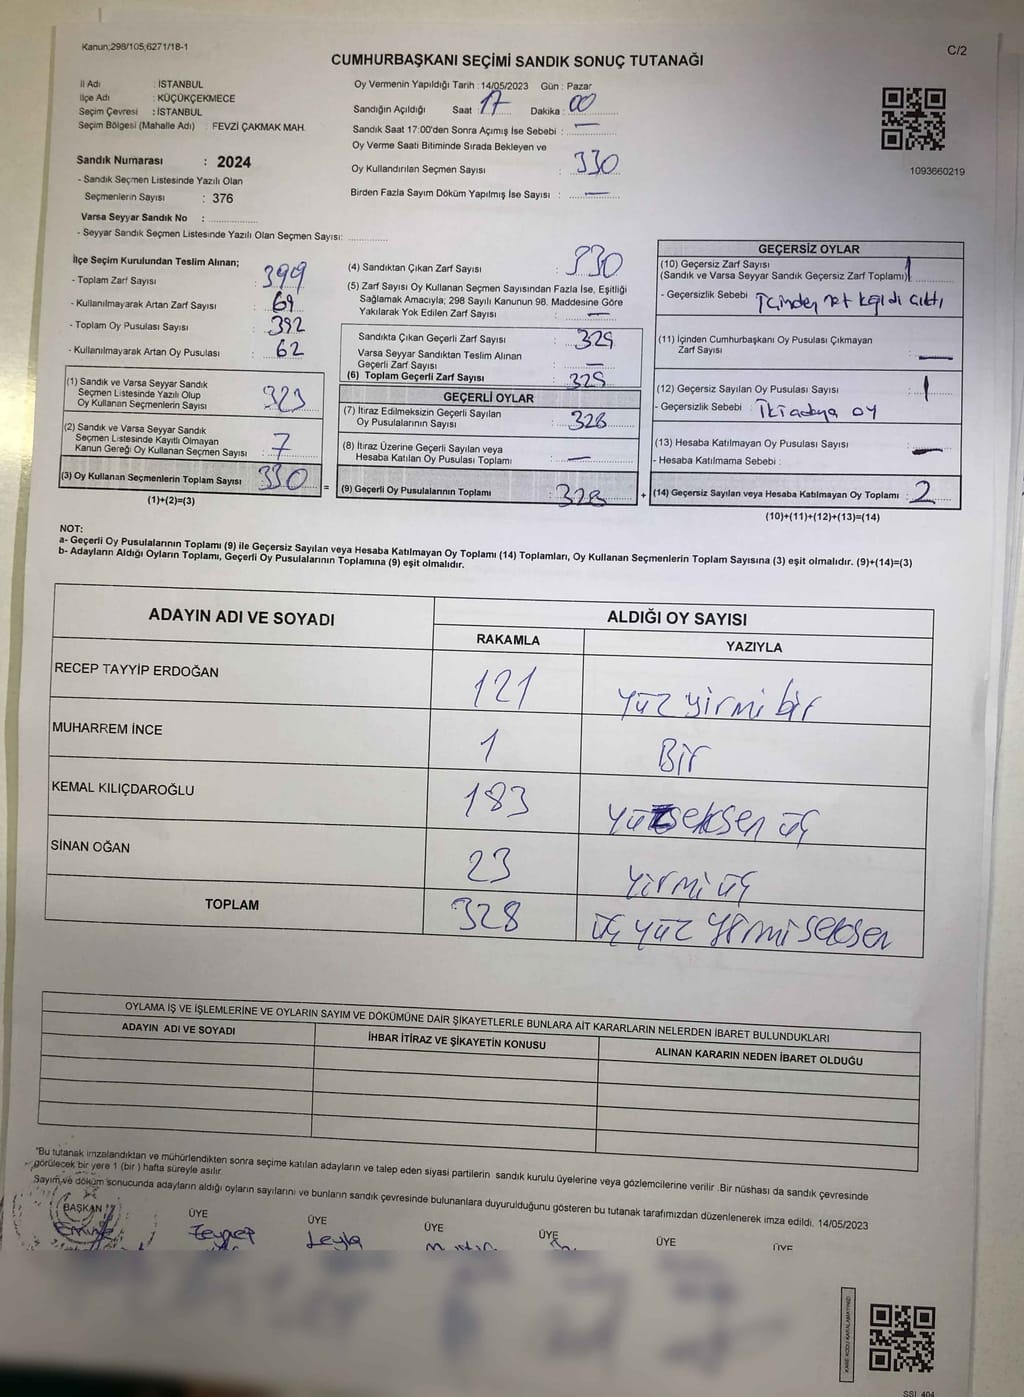 Kanun;298/105,6271/18-1
C/2
CUMHURBAŞKANI SEÇİMİ SANDIK SONUÇ TUTANAĞI
İl Adı : İSTANBUL
İlçe Adı : KÜÇÜKÇEKMECE
Seçim Çevresi : İSTANBUL
Seçim Bölgesi (Mahalle Adı) : FEVZİ ÇAKMAK MAH.
Sandık Numarası : 2024
- Sandık Seçmen Listesinde Yazılı Olan
Seçmenlerin Sayısı : 376
Varsa Seyyar Sandık No :
- Seyyar Sandık Seçmen Listesinde Yazılı Olan Seçmen Sayısı:
Oy Vermenin Yapıldığı Tarih : 14/05/2023 Gün : Pazar
Sandığın Açıldığı Saat : 17 Dakika : 00
Sandık Saat 17:00'den Sonra Açımış İse Sebebi : —
Oy Verme Saati Bitiminde Sırada Bekleyen ve
Oy Kullandırılan Seçmen Sayısı : 330
Birden Fazla Sayım Döküm Yapılmış İse Sayısı : —
1093660219
İlçe Seçim Kurulundan Teslim Alınan;
- Toplam Zarf Sayısı : 399
- Kullanılmayarak Artan Zarf Sayısı : 69
- Toplam Oy Pusulası Sayısı : 392
- Kullanılmayarak Artan Oy Pusulası : 62
(1) Sandık ve Varsa Seyyar Sandık
Seçmen Listesinde Yazılı Olup
Oy Kullanan Seçmenlerin Sayısı : 323
(2) Sandık ve Varsa Seyyar Sandık
Seçmen Listesinde Kayıtlı Olmayan
Kanun Gereği Oy Kullanan Seçmen Sayısı : 7
(3) Oy Kullanan Seçmenlerin Toplam Sayısı : 330
(1)+(2)=(3)
(4) Sandıktan Çıkan Zarf Sayısı : 330
(5) Zarf Sayısı Oy Kullanan Seçmen Sayısından Fazla İse, Eşitliği
Sağlamak Amacıyla; 298 Sayılı Kanunun 98. Maddesine Göre
Yakılarak Yok Edilen Zarf Sayısı : —
Sandıkta Çıkan Geçerli Zarf Sayısı : 329
Varsa Seyyar Sandıktan Teslim Alınan
Geçerli Zarf Sayısı : —
(6) Toplam Geçerli Zarf Sayısı : 329
GEÇERLİ OYLAR
(7) İtiraz Edilmeksizin Geçerli Sayılan
Oy Pusulalarının Sayısı : 328
(8) İtiraz Üzerine Geçerli Sayılan veya
Hesaba Katılan Oy Pusulası Toplamı : —
= (9) Geçerli Oy Pusulalarının Toplamı : 328
GEÇERSİZ OYLAR
(10) Geçersiz Zarf Sayısı
(Sandık ve Varsa Seyyar Sandık Geçersiz Zarf Toplamı) : 1
- Geçersizlik Sebebi : içinden not kağıdı çıktı
(11) İçinden Cumhurbaşkanı Oy Pusulası Çıkmayan
Zarf Sayısı : —
(12) Geçersiz Sayılan Oy Pusulası Sayısı : 1
- Geçersizlik Sebebi : İki adaya oy
(13) Hesaba Katılmayan Oy Pusulası Sayısı : —
- Hesaba Katılmama Sebebi :
+ (14) Geçersiz Sayılan veya Hesaba Katılmayan Oy Toplamı : 2
(10)+(11)+(12)+(13)=(14)
NOT:
a- Geçerli Oy Pusulalarının Toplamı (9) ile Geçersiz Sayılan veya Hesaba Katılmayan Oy Toplamı (14) Toplamları, Oy Kullanan Seçmenlerin Toplam Sayısına (3) eşit olmalıdır. (9)+(14)=(3)
b- Adayların Aldığı Oyların Toplamı, Geçerli Oy Pusulalarının Toplamına (9) eşit olmalıdır.
ADAYIN ADI VE SOYADI
ALDIĞI OY SAYISI
RAKAMLA YAZIYLA
RECEP TAYYİP ERDOĞAN 121 yüz yirmi bir
MUHARREM İNCE 1 Bir
KEMAL KILIÇDAROĞLU 183 yüzseksen üç
SİNAN OĞAN 23 yirmi üç
TOPLAM 328 üç yüz yirmi seksen
OYLAMA İŞ VE İŞLEMLERİNE VE OYLARIN SAYIM VE DÖKÜMÜNE DAİR ŞİKAYETLERLE BUNLARA AİT KARARLARIN NELERDEN İBARET BULUNDUKLARI
ADAYIN ADI VE SOYADI İHBAR İTİRAZ VE ŞİKAYETİN KONUSU ALINAN KARARIN NEDEN İBARET OLDUĞU
"Bu tutanak imzalandıktan ve mühürlendikten sonra seçime katılan adayların ve talep eden siyasi partilerin sandık kurulu üyelerine veya gözlemcilerine verilir .Bir nüshası da sandık çevresinde
görülecek bir yere 1 (bir ) hafta süreyle asılır.
Sayım ve döküm sonucunda adayların aldığı oyların sayılarını ve bunların sandık çevresinde bulunanlara duyurulduğunu gösteren bu tutanak tarafımızdan düzenlenerek imza edildi. 14/05/2023
BAŞKAN ÜYE ÜYE ÜYE ÜYE ÜYE ÜYE
Emine Zeynep Leyla
KARE KODU KARALAMAYINIZ!
SSI_404